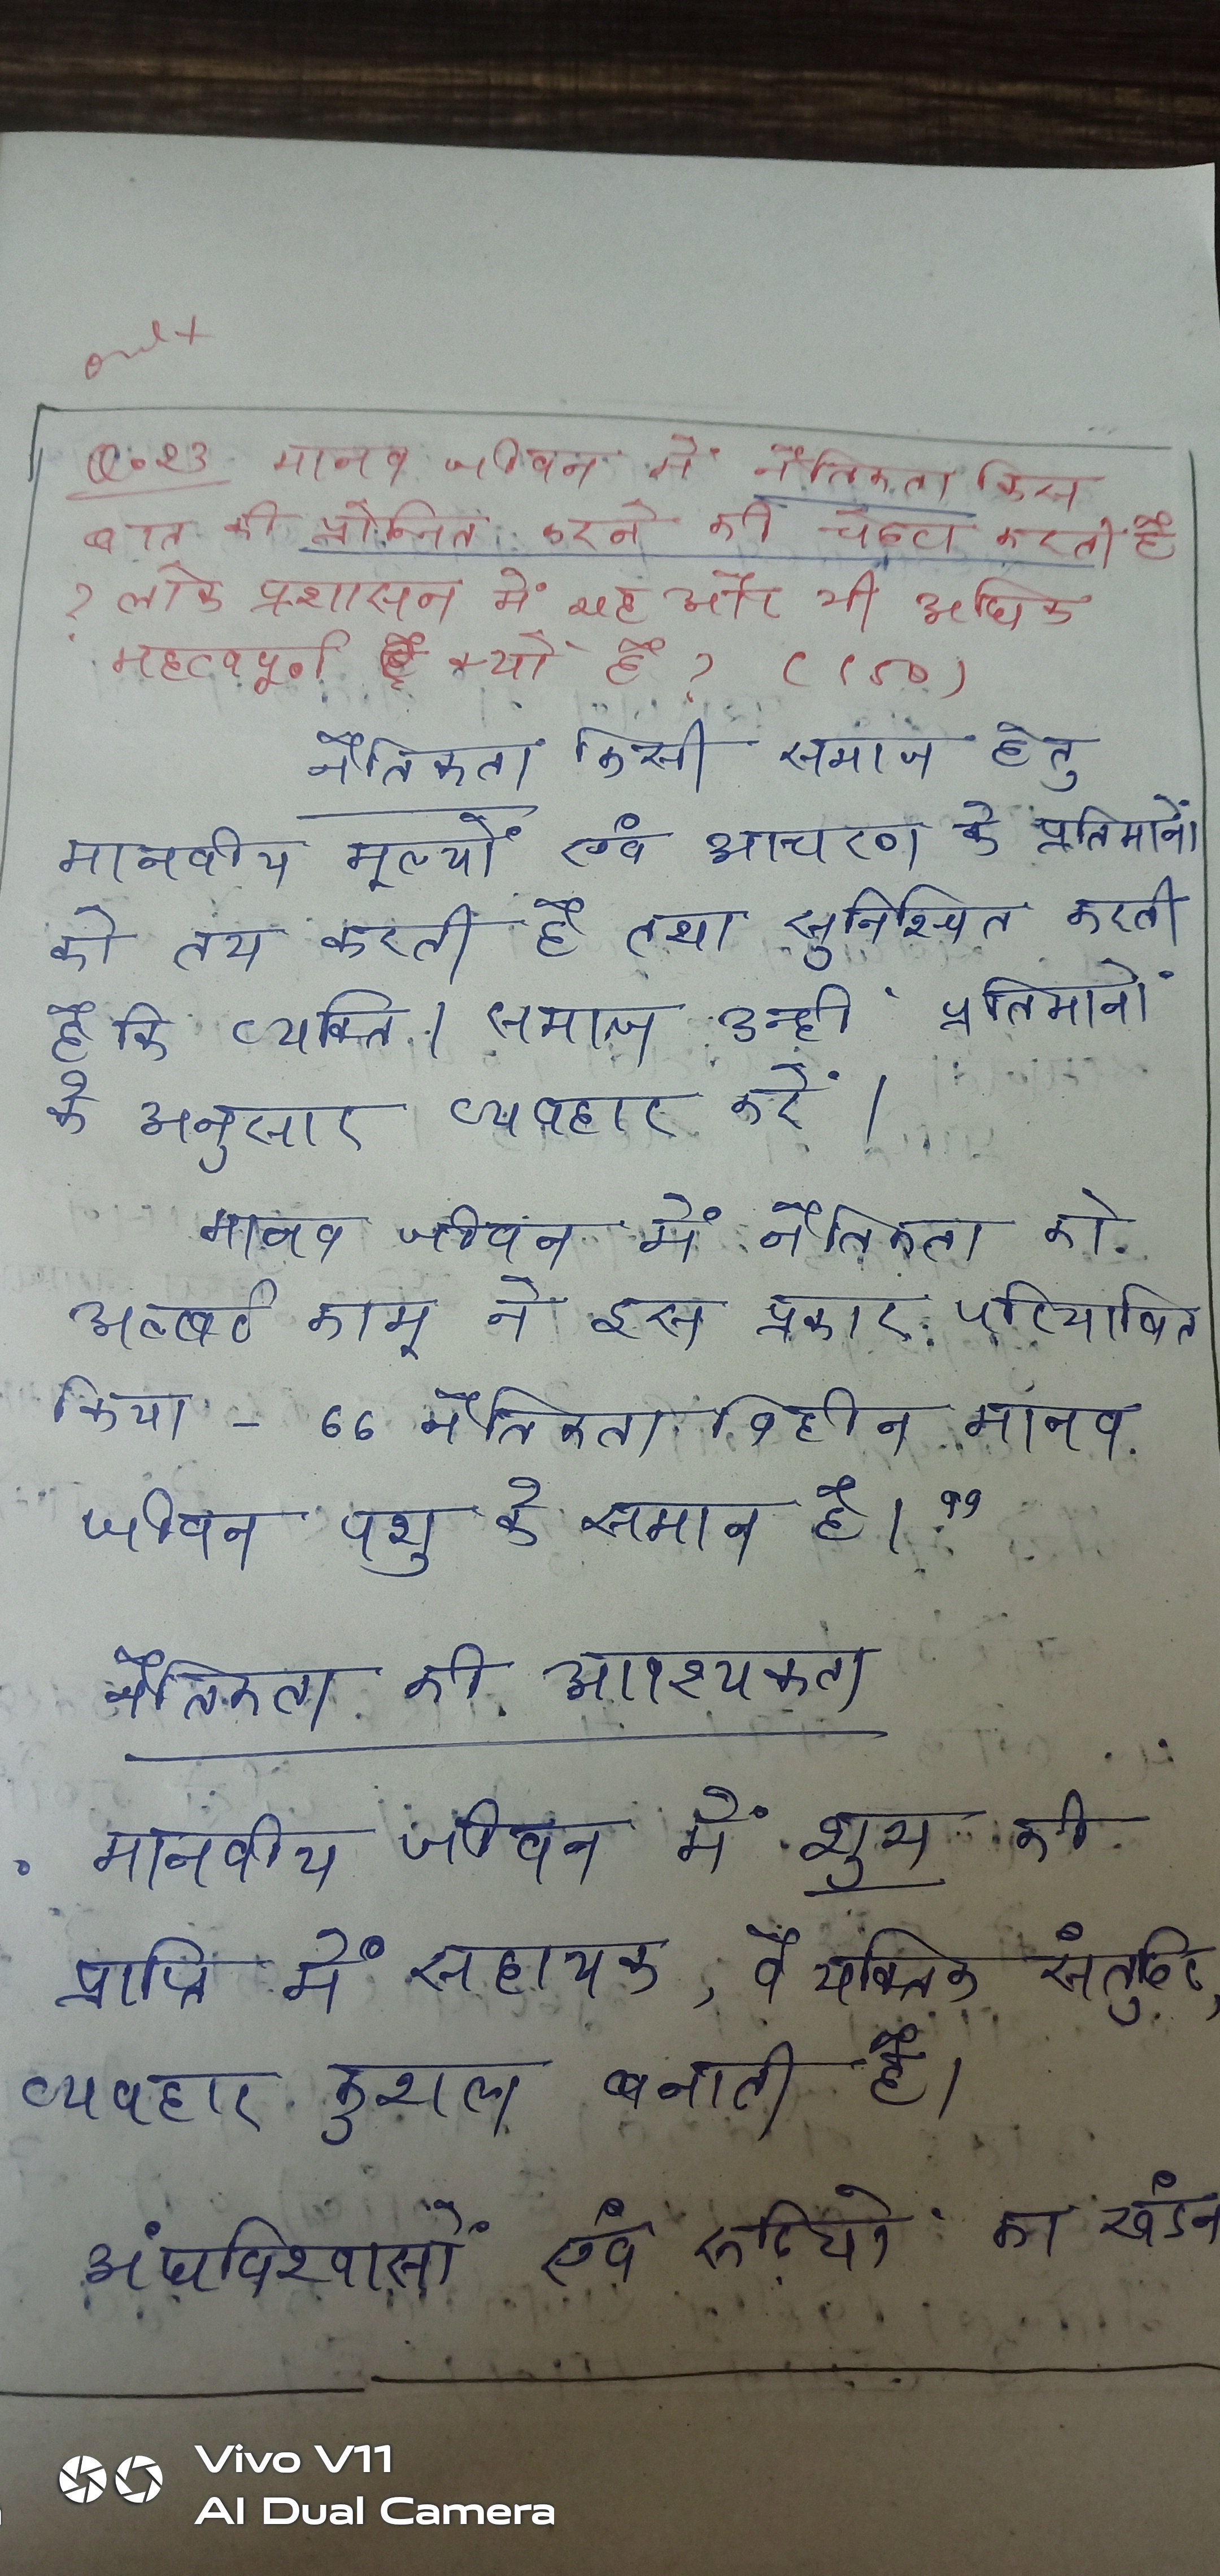 Q.23 मानव जीवन में नैतिकता किस
बात की प्रोन्नित करने की चेष्टा करती है
? लोक प्रशासन में यह और भी अधिक
महत्वपूर्ण क्यों है ? (150)
नैतिकता किसी समाज हेतु
मानवीय मूल्यों एवं आचरण के प्रतिमानों
को तय करती है तथा सुनिश्चित करती
है कि व्यक्ति / समाज उन्ही प्रतिमानों
के अनुसार व्यवहार करें ।
मानव जीवन में नैतिकता को
अल्बर्ट कामू ने इस प्रकार परिभाषित
किया - “ नैतिकता विहीन मानव
जीवन पशु के समान है। ”
नैतिकता की आवश्यकता
• मानवीय जीवन में शुभ की
प्राप्ति में सहायक, वैयक्तिक संतुष्टि,
व्यवहार कुशल बनाती है।
अंधविश्वासों एवं रूढियों का खंडन
Vivo V11
AI Dual Camera